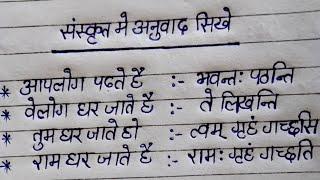 संस्कृत मे अनुवाद सिखे
* आपलोग पढते है :- भवन्तः पठन्ति
* वेलोग घर जाते है :- ते लिखन्ति
* तुम घर जाते हो :- त्वम् गृहं गच्छसि
* राम घर जाते है :- रामः गृहं गच्छति